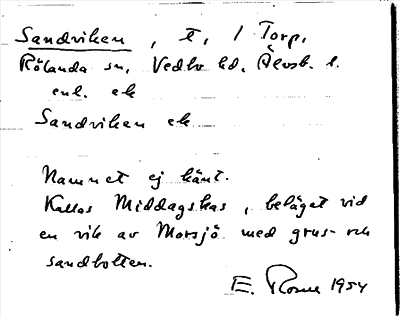 Sandviken, t, 1 Torp,
Rölanda sn, Vedbo hd. Älvsb. l.
enl. ek
Sandviken ek
Namnet ej känt.
Kallas Middagskas, beläget vid
en vik av Morsjö med grus- och
sandbotten.
E. 1954